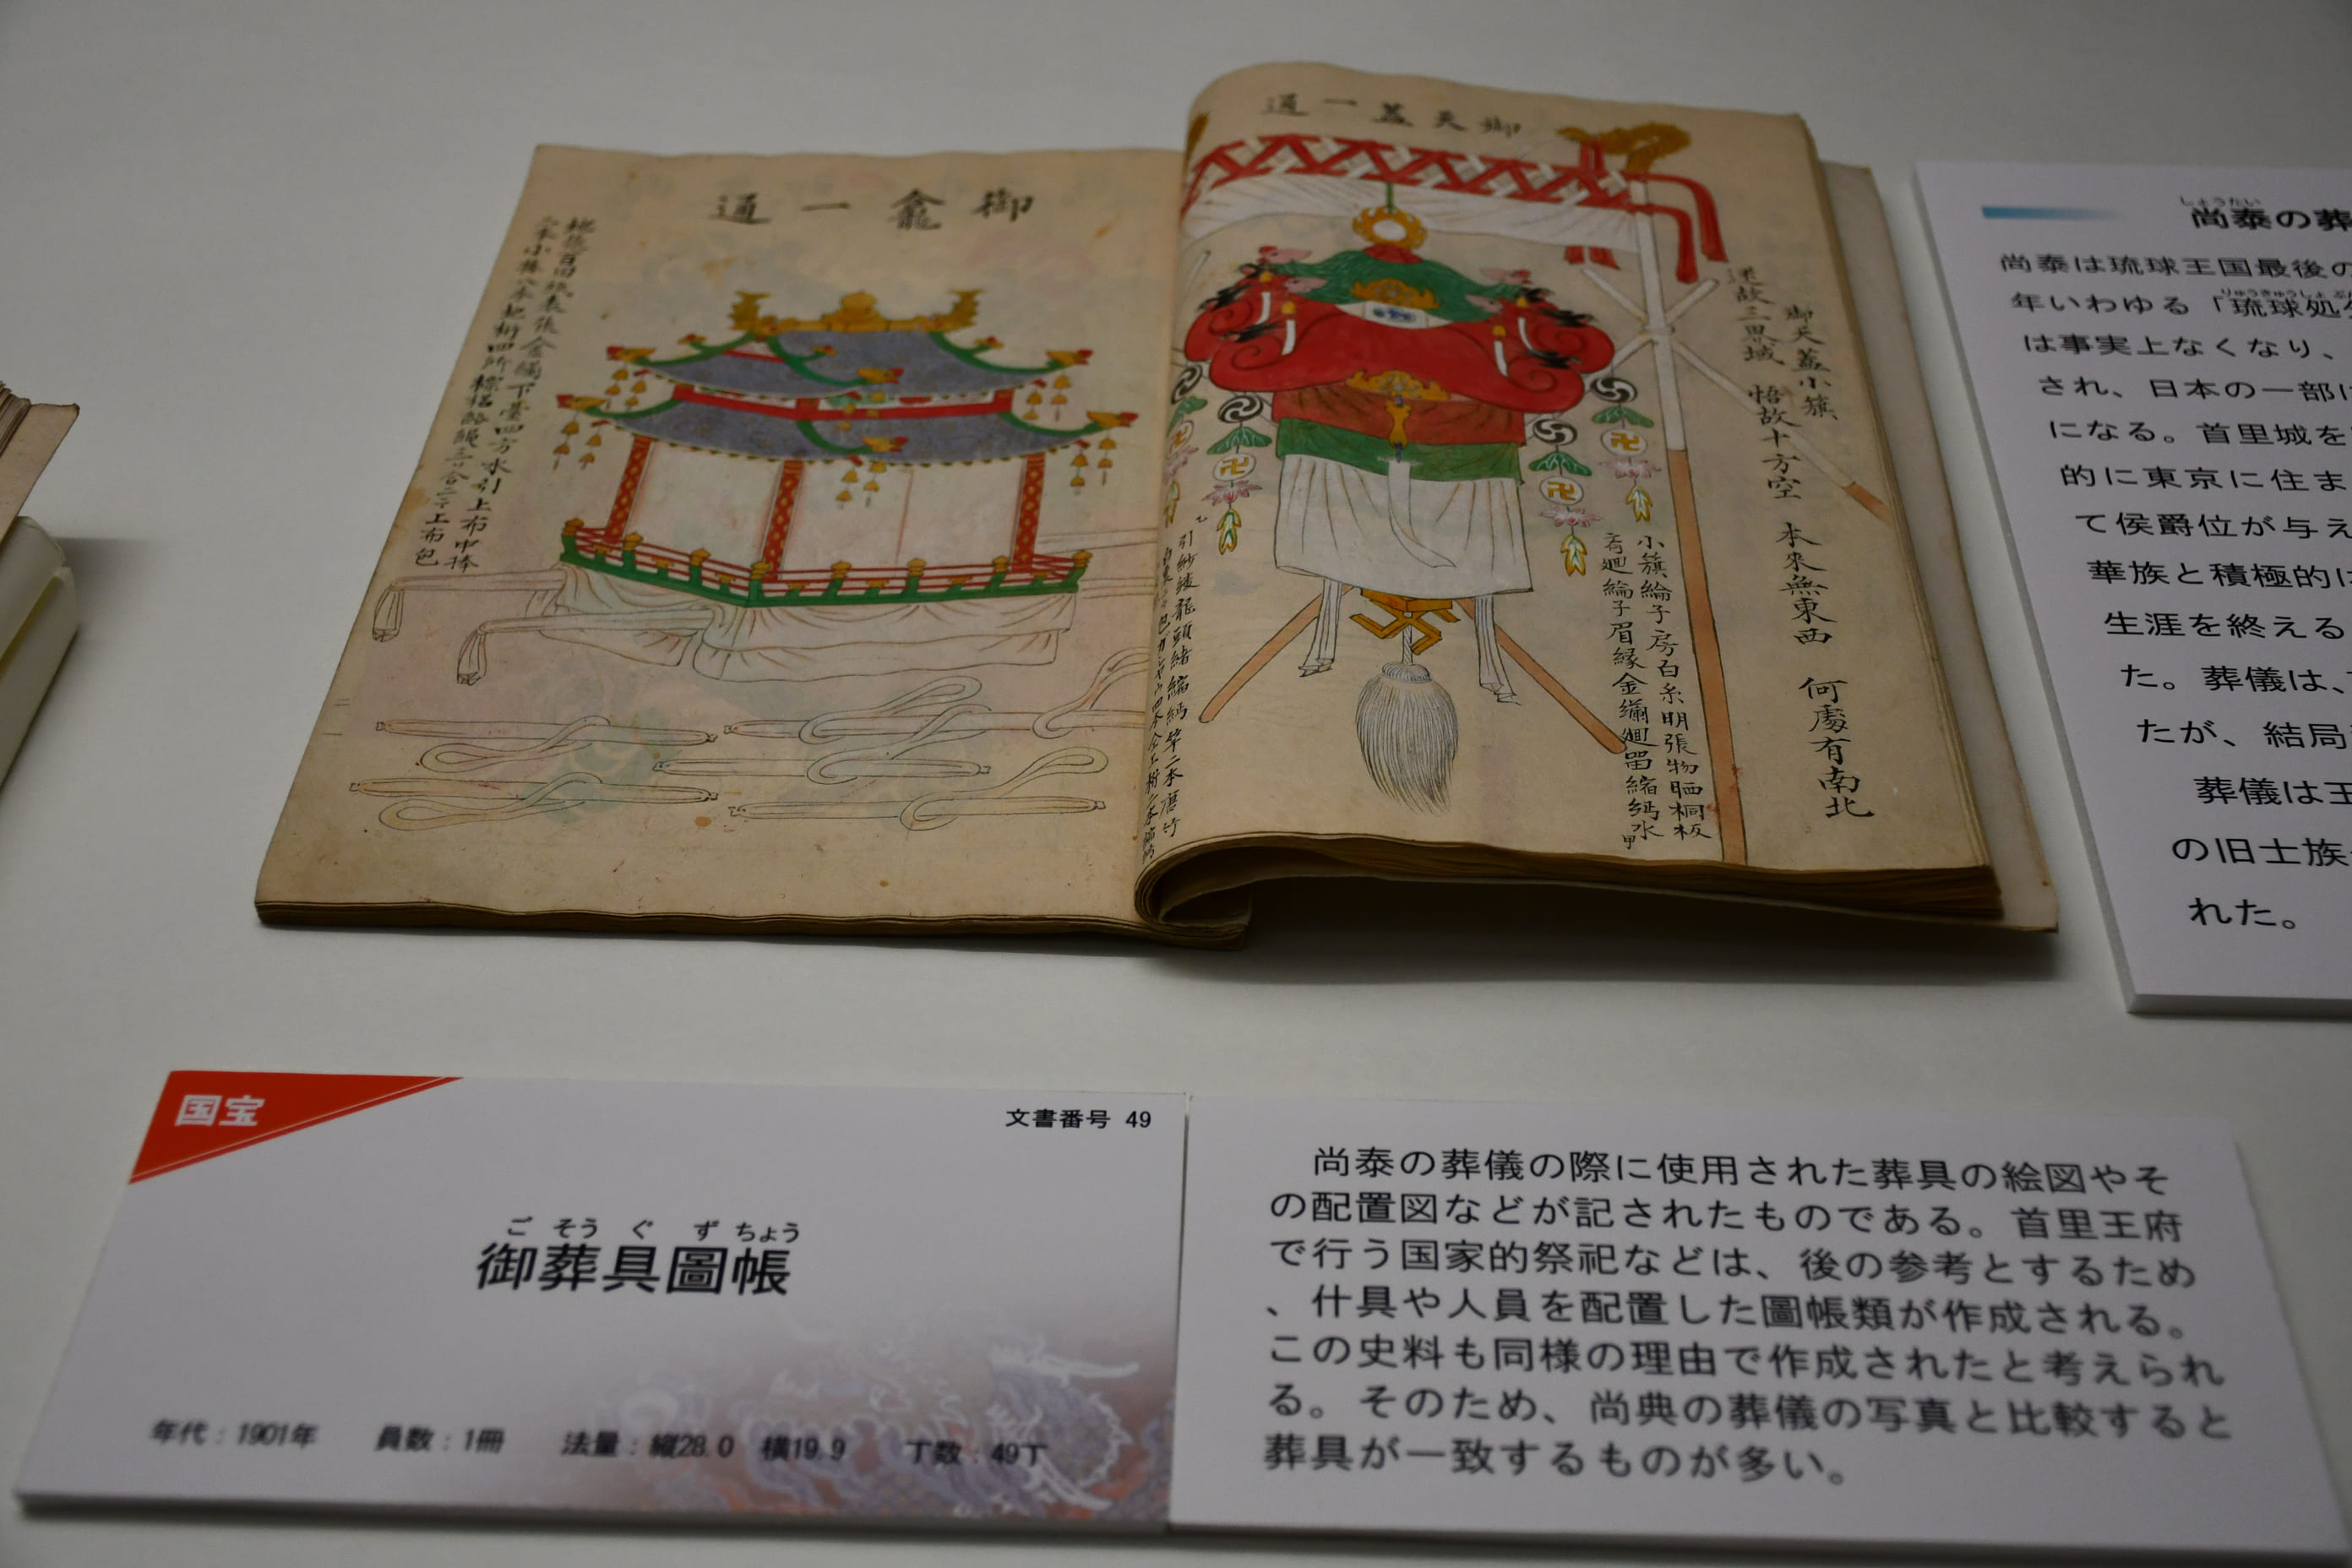 御天蓋一通
御天蓋小籏
迷故三界城 悟故十方空 本來無東西 何處有南北
小籏綸子房白糸明張物晒桐板
御龕一通
尚泰の葬
しょうたい
尚泰は琉球王国最後の
年いわゆる「琉球処分
りゅうきゅうしょぶ
は事実上なくなり、
され、日本の一部に
になる。首里城を
的に東京に住ま
て侯爵位が与え
華族と積極的に
生涯を終える
た。葬儀は、
たが、結局
葬儀は王
の旧士族
れた。
国宝
文書番号 49
ごそうぐずちょう
御葬具圖帳
年代：1901年 員数：1冊 法量：縦28.0 横19.9 丁数：49丁
尚泰の葬儀の際に使用された葬具の絵図やそ
の配置図などが記されたものである。首里王府
で行う国家的祭祀などは、後の参考とするため
、什具や人員を配置した圖帳類が作成される。
この史料も同様の理由で作成されたと考えられ
る。そのため、尚典の葬儀の写真と比較すると
葬具が一致するものが多い。